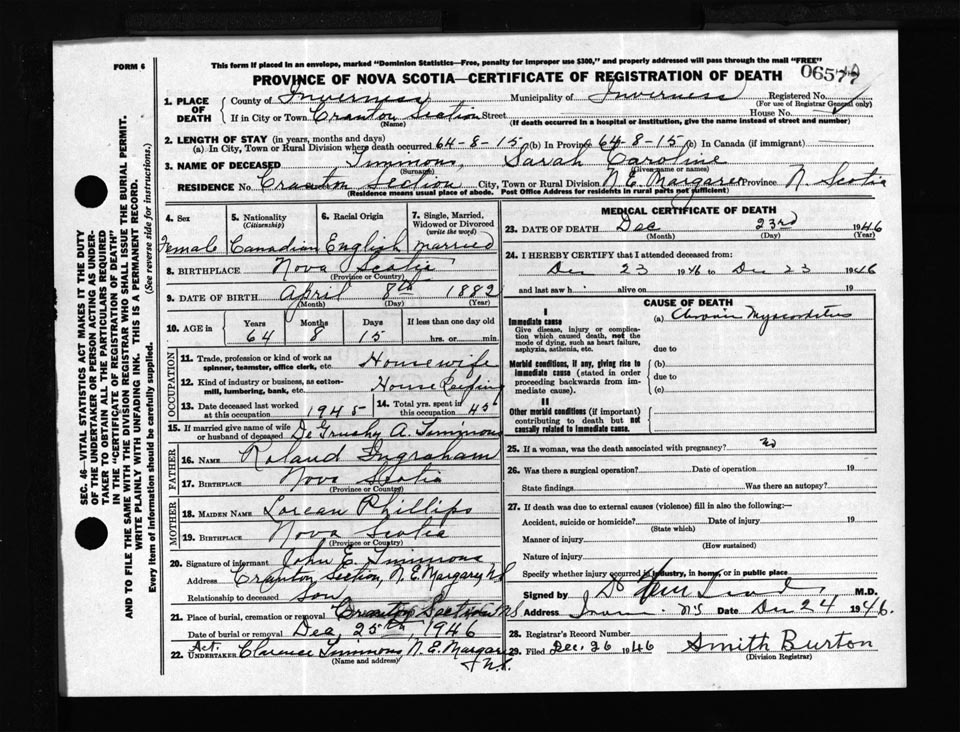 FORM 6
This form if placed in an envelope, marked "Dominion Statistics—Free, penalty for improper use $300," and properly addressed will pass through the mail "FREE"
PROVINCE OF NOVA SCOTIA—CERTIFICATE OF REGISTRATION OF DEATH
1. PLACE OF DEATH
County of Inverness Municipality of Inverness Registered No.
(For use of Registrar General only)
If in City or Town Cranton Section Street House No.
(Name) (If death occurred in a hospital or institution, give the name instead of street and number)
2. LENGTH OF STAY (in years, months and days)
(a) In City, Town or Rural Division where death occurred 64-8-15 (b) In Province 64-8-15 (c) In Canada (if immigrant)
3. NAME OF DECEASED Timmons, Sarah Caroline
(Surname) (Given name or names)
RESIDENCE No. Cranton Section City, Town or Rural Division N.E. Margaree Province N. Scotia
(Residence means usual place of abode. Post Office Address for residents in rural parts not sufficient)
4. Sex
5. Nationality (Citizenship)
6. Racial Origin
7. Single, Married, Widowed or Divorced (write the word)
Female Canadian English Married
8. BIRTHPLACE Nova Scotia
(Province or Country)
9. DATE OF BIRTH April 8th 1882
(Month) (Day) (Year)
10. AGE in Years Months Days If less than one day old
64 8 15 hrs. or min.
OCCUPATION
11. Trade, profession or kind of work as spinner, teamster, office clerk, etc. Housewife
12. Kind of industry or business, as cotton-mill, lumbering, bank, etc. House Keeping
13. Date deceased last worked at this occupation 1945
14. Total yrs. spent in this occupation 45
15. If married give name of wife or husband of deceased De Gruchy A. Timmons
FATHER
16. NAME Roland Ingraham
17. BIRTHPLACE Nova Scotia
(Province or Country)
MOTHER
18. MAIDEN NAME Phillips
19. BIRTHPLACE Nova Scotia
(Province or Country)
20. Signature of informant John E. Timmons
Address Cranton Section, N.E. Margaree N.S.
Relationship to deceased son
21. Place of burial, cremation or removal Cranton Section N.S.
Date of burial or removal Dec. 25th, 1946
22. Act. UNDERTAKER Clarence Timmons, N.E. Margaree
(Name and address) N.S.
MEDICAL CERTIFICATE OF DEATH
23. DATE OF DEATH Dec 23rd 1946
(Month) (Day) (Year)
24. I HEREBY CERTIFY that I attended deceased from:
Dec 23 1946 to Dec 23 1946
and last saw h alive on 19
CAUSE OF DEATH
I
Immediate cause (a) Chronic Myocarditis
Give disease, injury or complication which caused death, not the mode of dying, such as heart failure, asphyxia, asthenia, etc.
due to
Morbid conditions, if any, giving rise to immediate cause (stated in order proceeding backwards from immediate cause).
(b)
due to
(c)
II
Other morbid conditions (if important) contributing to death but not causally related to immediate cause.
25. If a woman, was the death associated with pregnancy? No
26. Was there a surgical operation? Date of operation 19
State findings Was there an autopsy?
27. If death was due to external causes (violence) fill in also the following:—
Accident, suicide or homicide? Date of injury 19
(State which)
Manner of injury
(How sustained)
Nature of injury
Specify whether injury occurred in industry, in home, or in public place
Signed by M.D.
Address N.S. Date Dec 24 1946.
28. Registrar's Record Number
29. Filed Dec. 26 1946 Smith Burton
(Division Registrar)
SEC. 46—VITAL STATISTICS ACT MAKES IT THE DUTY
OF THE UNDERTAKER OR PERSON ACTING AS UNDER-
TAKER TO OBTAIN ALL THE PARTICULARS REQUIRED
IN THE "CERTIFICATE OF REGISTRATION OF DEATH"
AND TO FILE THE SAME WITH THE DIVISION REGISTRAR WHO SHALL ISSUE THE BURIAL PERMIT.
WRITE PLAINLY WITH UNFADING INK. THIS IS A PERMANENT RECORD.
Every item of information should be carefully supplied. (See reverse side for instructions.)